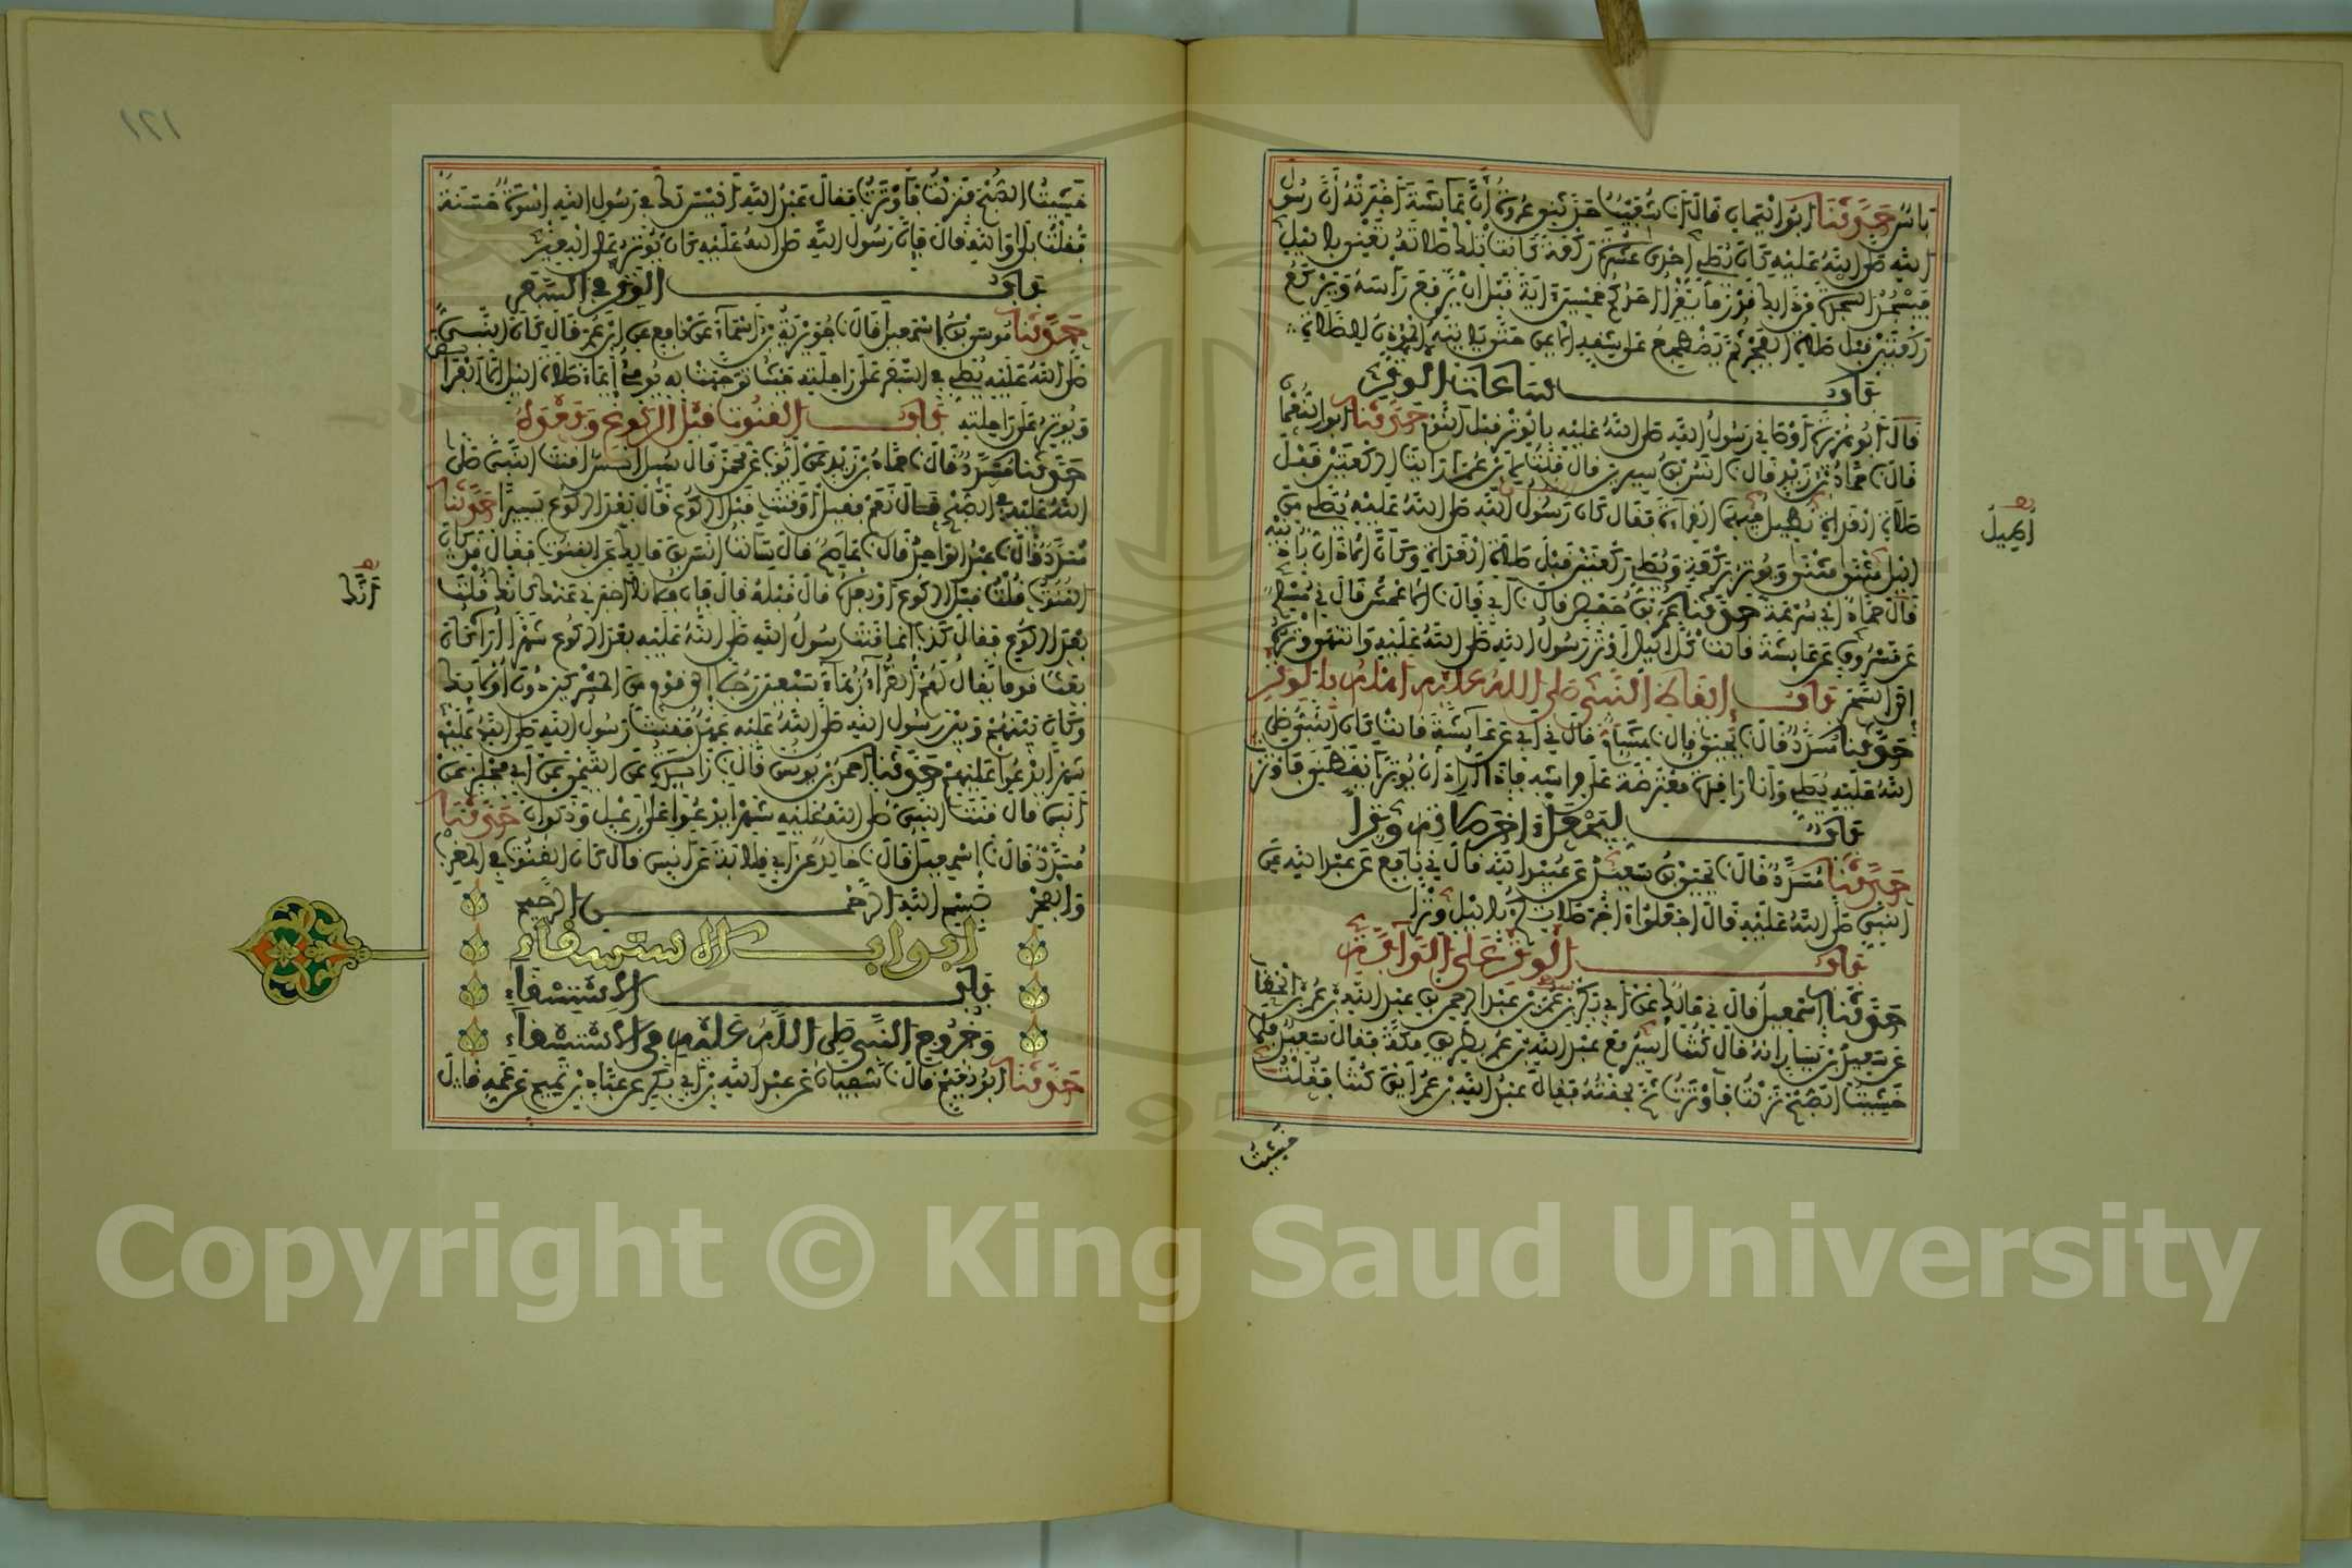 بأس حدثنا أبو اليمان قال أنا شعيب حدثني عروة أن عائشة أخبرته أن رسول
الله صلى الله عليه كان يصلي إحدى عشرة ركعة كانت تلك صلاته تعني بالليل
فيسجد السجدة من ذلك قدر ما يقرأ أحدكم خمسين آية قبل أن يرفع رأسه ويركع
ركعتين قبل صلاة الفجر ثم يضطجع على شقه الأيمن حتى يأتيه المؤذن للصلاة
باب ساعات الوتر
قال أبو هريرة أوصاني رسول الله صلى الله عليه بالوتر قبل النوم حدثنا أبو النعمان
قال نا حماد بن زيد قال نا أنس بن سيرين قال قلت لابن عمر أرأيت الركعتين قبل
صلاة الغداة نطيل فيهما القراءة فقال كان رسول الله صلى الله عليه يصلي من
أطيل
الليل مثنى مثنى ويوتر بركعة ويصلي ركعتين قبل صلاة الغداة وكأن الأذان بأذنيه
قال حماد أي سرعة حدثنا عمر بن حفص قال نا أبي قال نا الأعمش قال ني مسلم
عن مسروق عن عائشة قالت كل الليل أوتر رسول الله صلى الله عليه وانتهى وتره
إلى السحر باب إيقاظ النبي صلى الله عليه أهله بالوتر
حدثنا مسدد قال نا يحيى قال نا هشام قال ني أبي عن عائشة قالت كان النبي صلى
الله عليه يصلي وأنا راقدة معترضة على فراشه فإذا أراد أن يوتر أيقظني فأوترت
باب ليجعل آخر صلاته وترا
حدثنا مسدد قال نا يحيى بن سعيد عن عبيد الله قال ني نافع عن عبد الله عن
النبي صلى الله عليه قال اجعلوا آخر صلاتكم بالليل وترا
باب الوتر على الدابة
حدثنا إسمعيل قال ني مالك عن أبي بكر بن عمر بن عبد الرحمن بن عبد الله بن عمر بن الخطاب
عن سعيد بن يسار أنه قال كنت أسير مع عبد الله بن عمر بطريق مكة فقال سعيد فلما
خشيت الصبح نزلت فأوترت ثم لحقته فقال عبد الله بن عمر أين كنت فقلت
خشيت
١٢١
خشيت الصبح فنزلت فأوترت فقال عبد الله أليس لك في رسول الله إسوة حسنة
فقلت بلى والله قال فإن رسول الله صلى الله عليه كان يوتر على البعير
باب الوتر في السفر
حدثنا موسى بن إسمعيل قال نا جويرية بن أسماء عن نافع عن ابن عمر قال كان النبي
صلى الله عليه يصلي في السفر على راحلته حيث توجهت به يومئ إيماء صلاة الليل إلا الفرائض
ويوتر على راحلته باب القنوت قبل الركوع وبعده
حدثنا مسدد قال نا حماد بن زيد عن أيوب عن محمد قال سئل أنس أقنت النبي صلى
الله عليه في الصبح قال نعم فقيل أوقنت قبل الركوع قال بعد الركوع يسيرا حدثنا
مسدد قال نا عبد الواحد قال نا عاصم قال سألت أنس بن مالك عن القنوت فقال قد كان
القنوت قلت قبل الركوع أو بعده قال قبله قال فإن فلانا أخبرني عنك أنك قلت
أنك
بعد الركوع فقال كذب إنما قنت رسول الله صلى الله عليه بعد الركوع شهرا أراه كان
بعث قوما يقال لهم القراء زهاء سبعين رجلا إلى قوم من المشركين دون أولئك
وكان بينهم وبين رسول الله صلى الله عليه عهد فقنت رسول الله صلى الله عليه
شهرا يدعو عليهم حدثنا أحمد بن يونس قال نا زائدة عن التيمي عن أبي مجلز عن
أنس قال قنت النبي صلى الله عليه شهرا يدعو على رعل وذكوان حدثنا
مسدد قال نا إسمعيل قال نا خالد عن أبي قلابة عن أنس قال كان القنوت في المغرب
والفجر بسم الله الرحمن الرحيم
أبواب الاستسقاء
باب الاستسقاء
وخروج النبي صلى الله عليه في الاستسقاء
حدثنا أبو نعيم قال نا سفيان عن عبد الله بن أبي بكر عن عباد بن تميم عن عمه قال
Copyright © King Saud University
1957